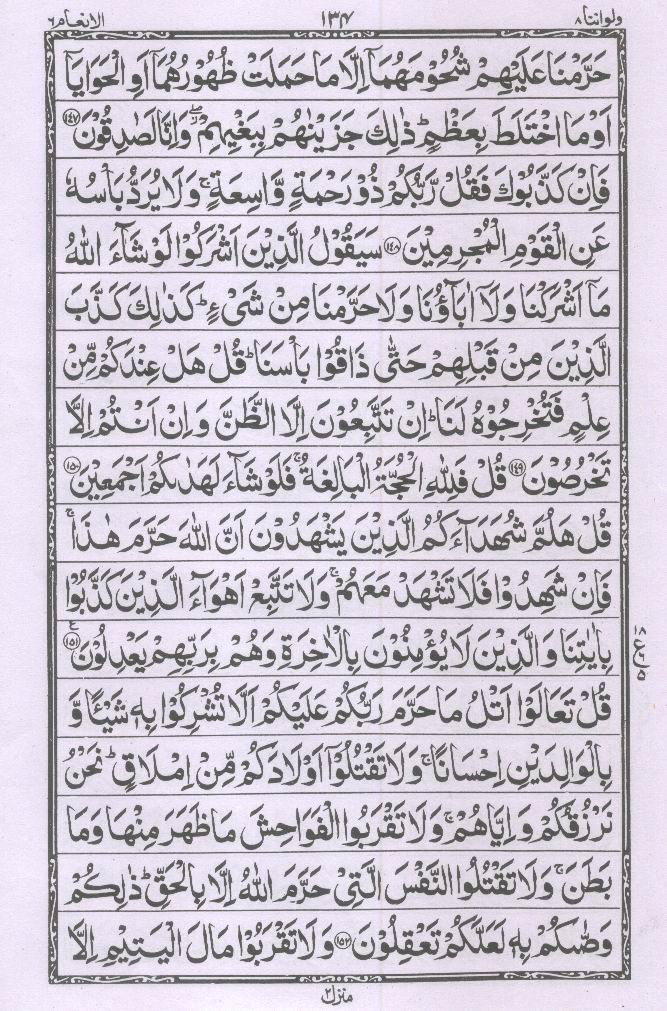 ولواننا ٨ ١٣٤ الانعام ٦
حَرَّمْنَا عَلَيْهِمْ شُحُوْمَهُمَاۤ اِلَّا مَا حَمَلَتْ ظُهُوْرُهُمَاۤ اَوِ الْحَوَايَاۤ
اَوْ مَا اخْتَلَطَ بِعَظْمٍ ؕ ذٰلِكَ جَزَيْنٰهُمْ بِبَغْيِهِمْ ۖ وَاِنَّا لَصٰدِقُوْنَ ﴿۱۴۷﴾
فَاِنْ كَذَّبُوْكَ فَقُلْ رَّبُّكُمْ ذُوْ رَحْمَةٍ وَّاسِعَةٍ ۚ وَلَا يُرَدُّ بَاْسُهٗ
عَنِ الْقَوْمِ الْمُجْرِمِيْنَ ﴿۱۴۸﴾ سَيَقُوْلُ الَّذِيْنَ اَشْرَكُوْا لَوْ شَآءَ اللّٰهُ
مَاۤ اَشْرَكْنَا وَلَاۤ اٰبَآؤُنَا وَلَا حَرَّمْنَا مِنْ شَىْءٍ ؕ كَذٰلِكَ كَذَّبَ
الَّذِيْنَ مِنْ قَبْلِهِمْ حَتّٰى ذَاقُوْا بَاْسَنَا ؕ قُلْ هَلْ عِنْدَكُمْ مِّنْ
عِلْمٍ فَتُخْرِجُوْهُ لَنَا ؕ اِنْ تَتَّبِعُوْنَ اِلَّا الظَّنَّ وَاِنْ اَنْتُمْ اِلَّا
تَخْرُصُوْنَ ﴿۱۴۹﴾ قُلْ فَلِلّٰهِ الْحُجَّةُ الْبَالِغَةُ ۚ فَلَوْ شَآءَ لَهَدٰىكُمْ اَجْمَعِيْنَ ﴿۱۵۰﴾
قُلْ هَلُمَّ شُهَدَآءَكُمُ الَّذِيْنَ يَشْهَدُوْنَ اَنَّ اللّٰهَ حَرَّمَ هٰذَا ۚ
فَاِنْ شَهِدُوْا فَلَا تَشْهَدْ مَعَهُمْ ۚ وَلَا تَتَّبِعْ اَهْوَآءَ الَّذِيْنَ كَذَّبُوْا
بِاٰيٰتِنَا وَالَّذِيْنَ لَا يُؤْمِنُوْنَ بِالْاٰخِرَةِ وَهُمْ بِرَبِّهِمْ يَعْدِلُوْنَ ﴿۱۵۱﴾ ع
قُلْ تَعَالَوْا اَتْلُ مَا حَرَّمَ رَبُّكُمْ عَلَيْكُمْ اَلَّا تُشْرِكُوْا بِهٖ شَيْئًا وَّ
بِالْوَالِدَيْنِ اِحْسَانًا ۚ وَلَا تَقْتُلُوْۤا اَوْلَادَكُمْ مِّنْ اِمْلَاقٍ ؕ نَحْنُ
نَرْزُقُكُمْ وَاِيَّاهُمْ ۚ وَلَا تَقْرَبُوا الْفَوَاحِشَ مَا ظَهَرَ مِنْهَا وَمَا
بَطَنَ ۚ وَلَا تَقْتُلُوا النَّفْسَ الَّتِىْ حَرَّمَ اللّٰهُ اِلَّا بِالْحَقِّ ؕ ذٰلِكُمْ
وَصّٰىكُمْ بِهٖ لَعَلَّكُمْ تَعْقِلُوْنَ ﴿۱۵۲﴾ وَلَا تَقْرَبُوْا مَالَ الْيَتِيْمِ اِلَّا
منزل ٢